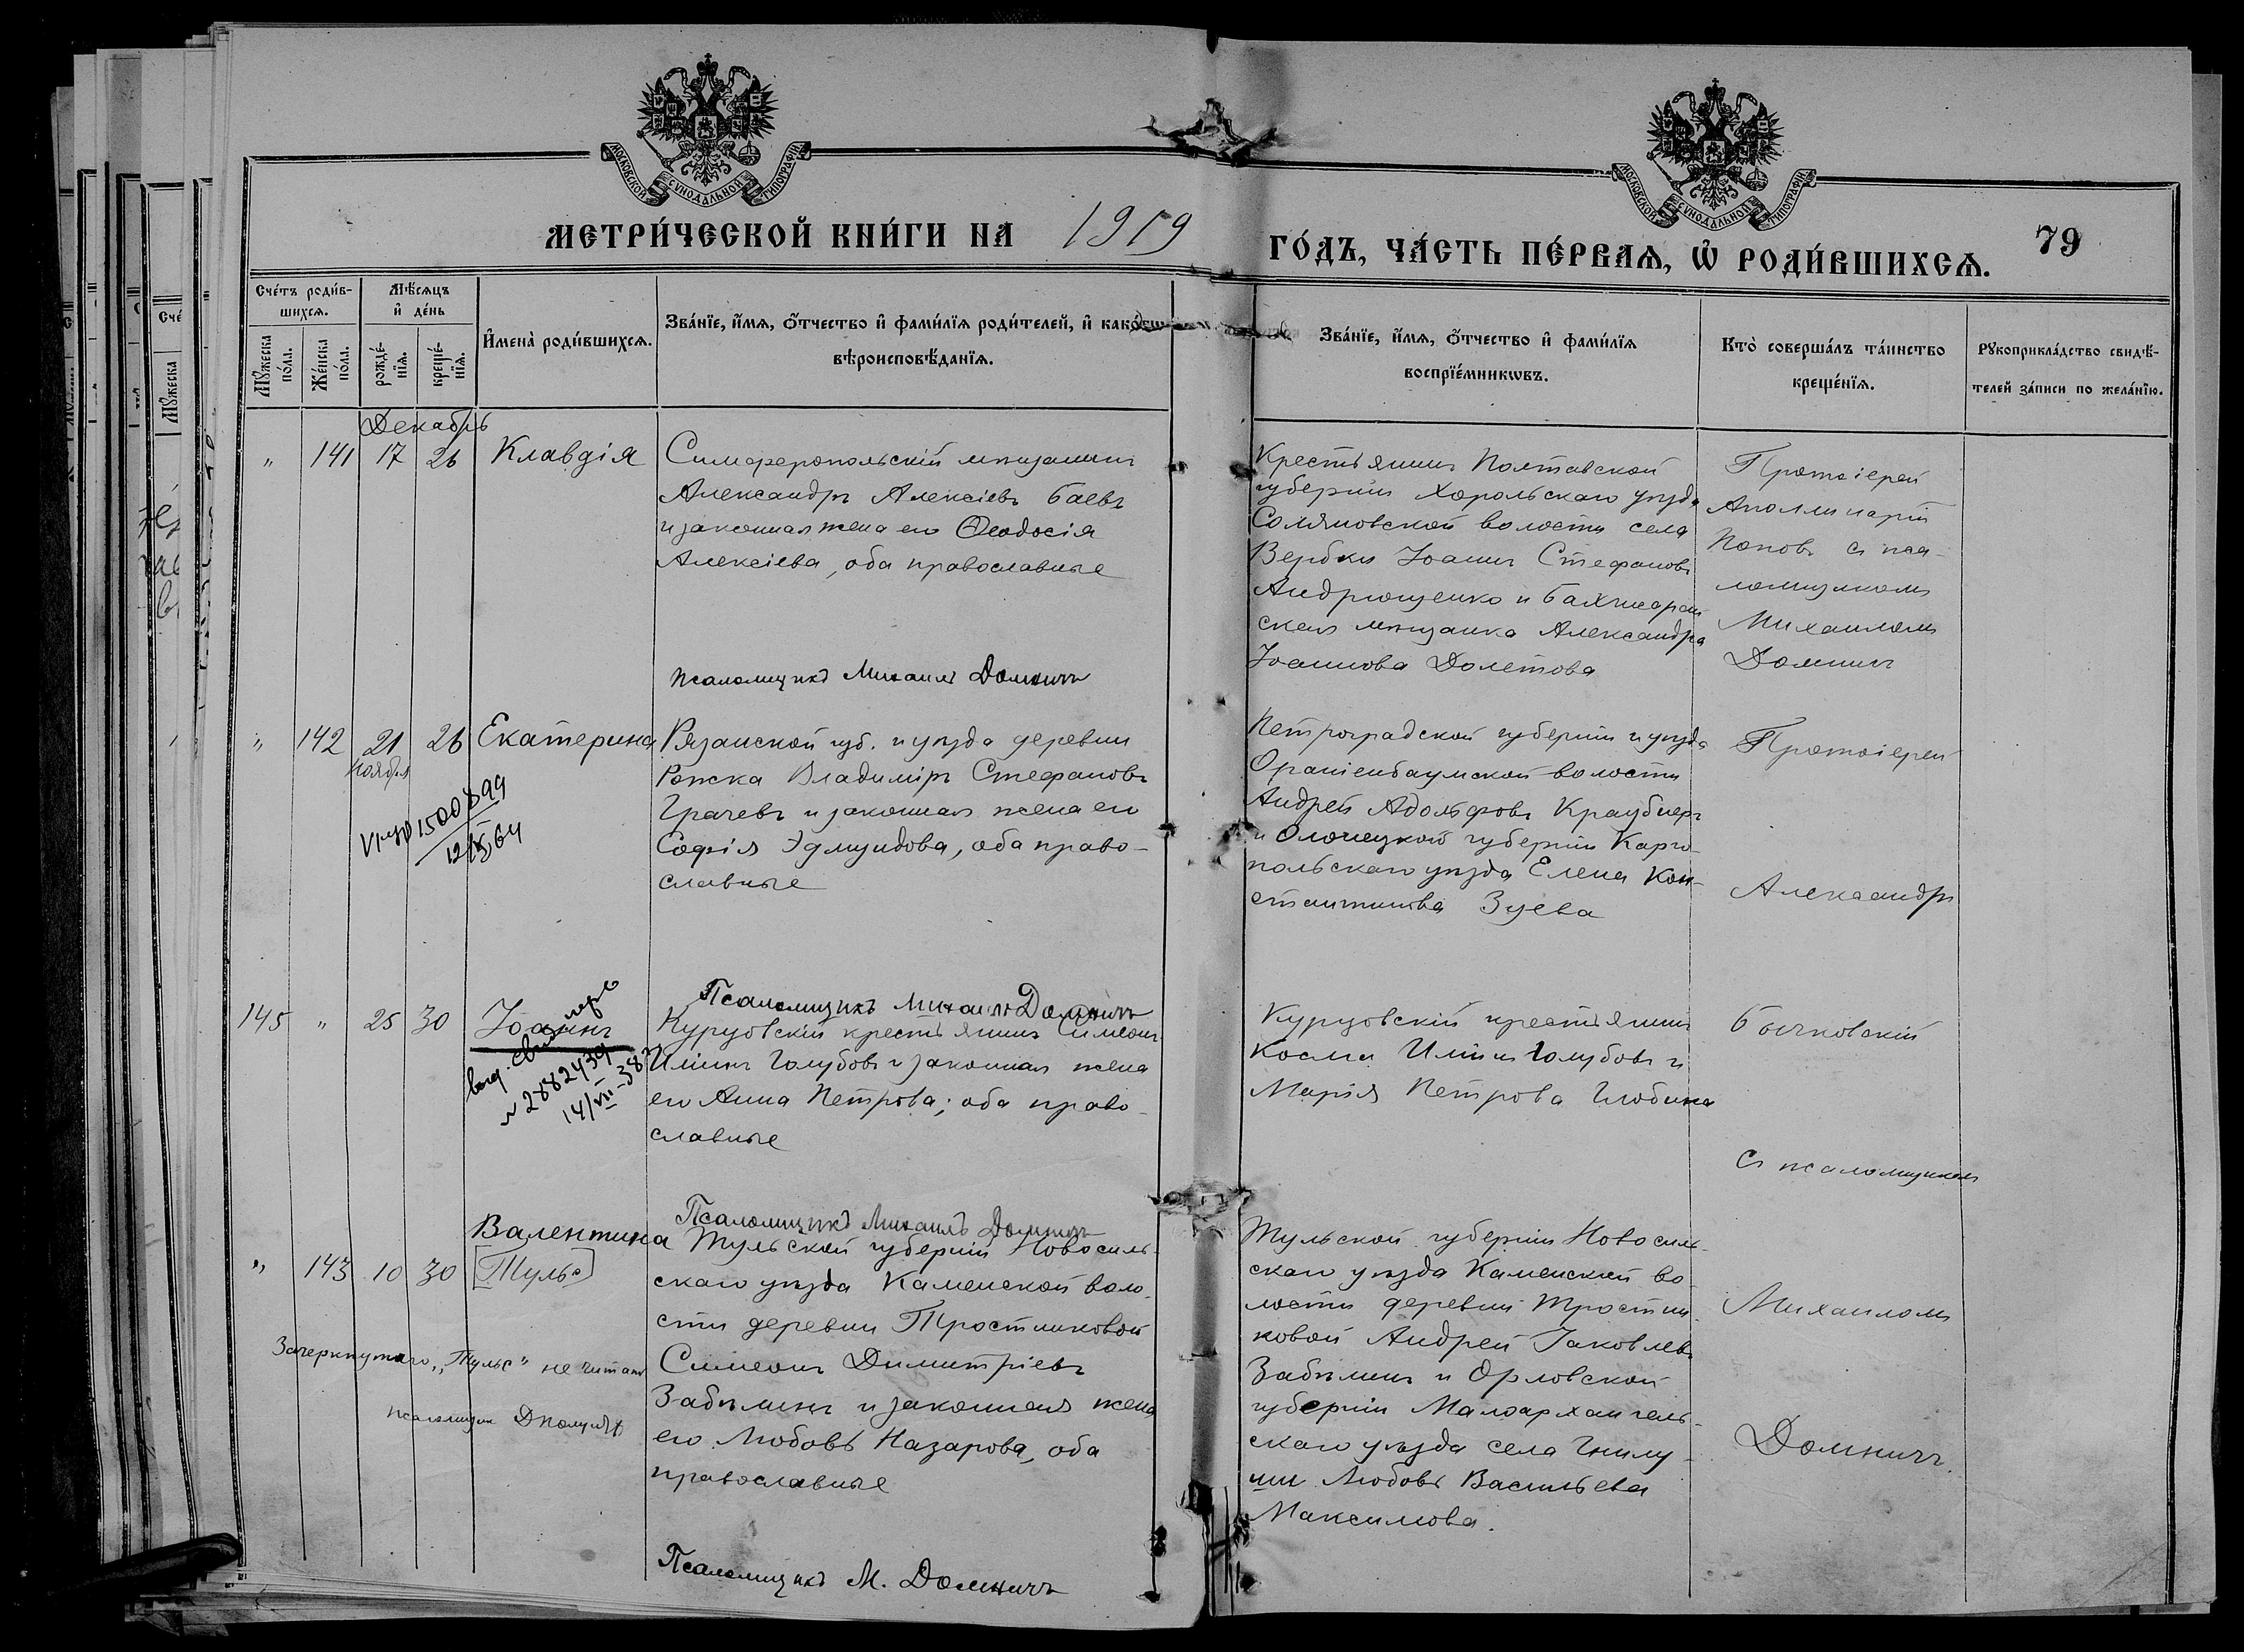 МОСКОВСКОЙ СѴНОДАЛЬНОЙ ТИПОГРАФІИ
МОСКОВСКОЙ СѴНОДАЛЬНОЙ ТИПОГРАФІИ
МЕТРИ́ЧЕСКОЙ КНИ́ГИ НА 1919
ГО́ДЪ, ЧА́СТЬ ПЕ́РВАѦ, Ѡ҆ РОДИ́ВШИХСѦ.
79
Сче́тъ роди́в-
шихсѧ.
Мѣ́сѧцъ
и҆ де́нь
Мꙋ́жеска
по́ла.
Же́нска
по́ла.
рожде́-
нїѧ.
креще́-
нїѧ.
И҆мена̀ роди́вшихсѧ.
Зва́нїе, и҆́мѧ, ѻ҆́тчество и҆ фами́лїѧ роди́телей, и҆ како́гѡ
вѣроисповѣ́данїѧ.
Зва́нїе, и҆́мѧ, ѻ҆́тчество и҆ фами́лїѧ
воспрїе́мникѡвъ.
Кто̀ соверша́лъ та́инство
креще́нїѧ.
Рꙋкоприкла́дство свидѣ́-
телей за́писи по жела́нїю.
Декабрь
" 141 17 26 Клавдія
Симферопольскій мѣщанинъ
Александръ Алексіевъ Баевъ
и законная жена его Ѳеодосія
Алексіева, оба православные
Псаломщикъ Михаилъ Домничъ
Крестьянинъ Полтавской
губерніи Хорольскаго уѣзда
волости села
Вербки Іоаннъ Стефановъ
Андрющенко и Бахчисарай-
ская мѣщанка Александра
Іоаннова Долетова
Протоіерей
Аполлинарій
Поповъ съ пса-
ломщикомъ
Михаиломъ
Домничъ
" 142 21 26 Екатерина
Ноября
1500899
12/IX 64
Рязанской губ. и уѣзда деревни
Рожска Владиміръ Стефановъ
Грачевъ и законная жена его
Софія Эдмундова, оба право-
славные
Псаломщикъ Михаилъ Домничъ
Петроградской губерніи и уѣзда
Ораніенбаумской волости
Андрей Адольфовъ Краубнеръ
и Олонецкой губерніи Карго-
польскаго уѣзда Елена Кон-
стантинова Зуева
Протоіерей
Александръ
145 " 25 30 Іоаннъ
выд. свид.
№ 2882439
14/VII-38
Курцовскій крестьянинъ Симеонъ
Иліинъ Голубовъ и законная жена
его Анна Петрова; оба право-
славные
Псаломщикъ Михаилъ Домничъ
Курцовскій крестьянинъ
Косма Иліинъ Голубовъ и
Марія Петрова Глобина
Бычковскій
съ псаломщикомъ
Валентина
" 143 10 30 [Тульс]
Зачеркнутаго „Тульс" не читать
псаломщик
Тульской губерніи Новосиль-
скаго уѣзда Каменской воло-
сти деревни Тростниковой
Симеонъ Димитріевъ
Забѣлинъ и законная жена
его Любовь Назарова, оба
православные
Псаломщикъ М. Домничъ
Тульской губерніи Новосиль-
скаго уѣзда Каменской во-
лости деревни Тростни-
ковой Андрей Іаковлевъ
Забѣлинъ и Орловской
губерніи Малоархангель-
скаго уѣзда села Гнилу-
ши Любовь Васильева
Максимова.
Михаиломъ
Домничъ.